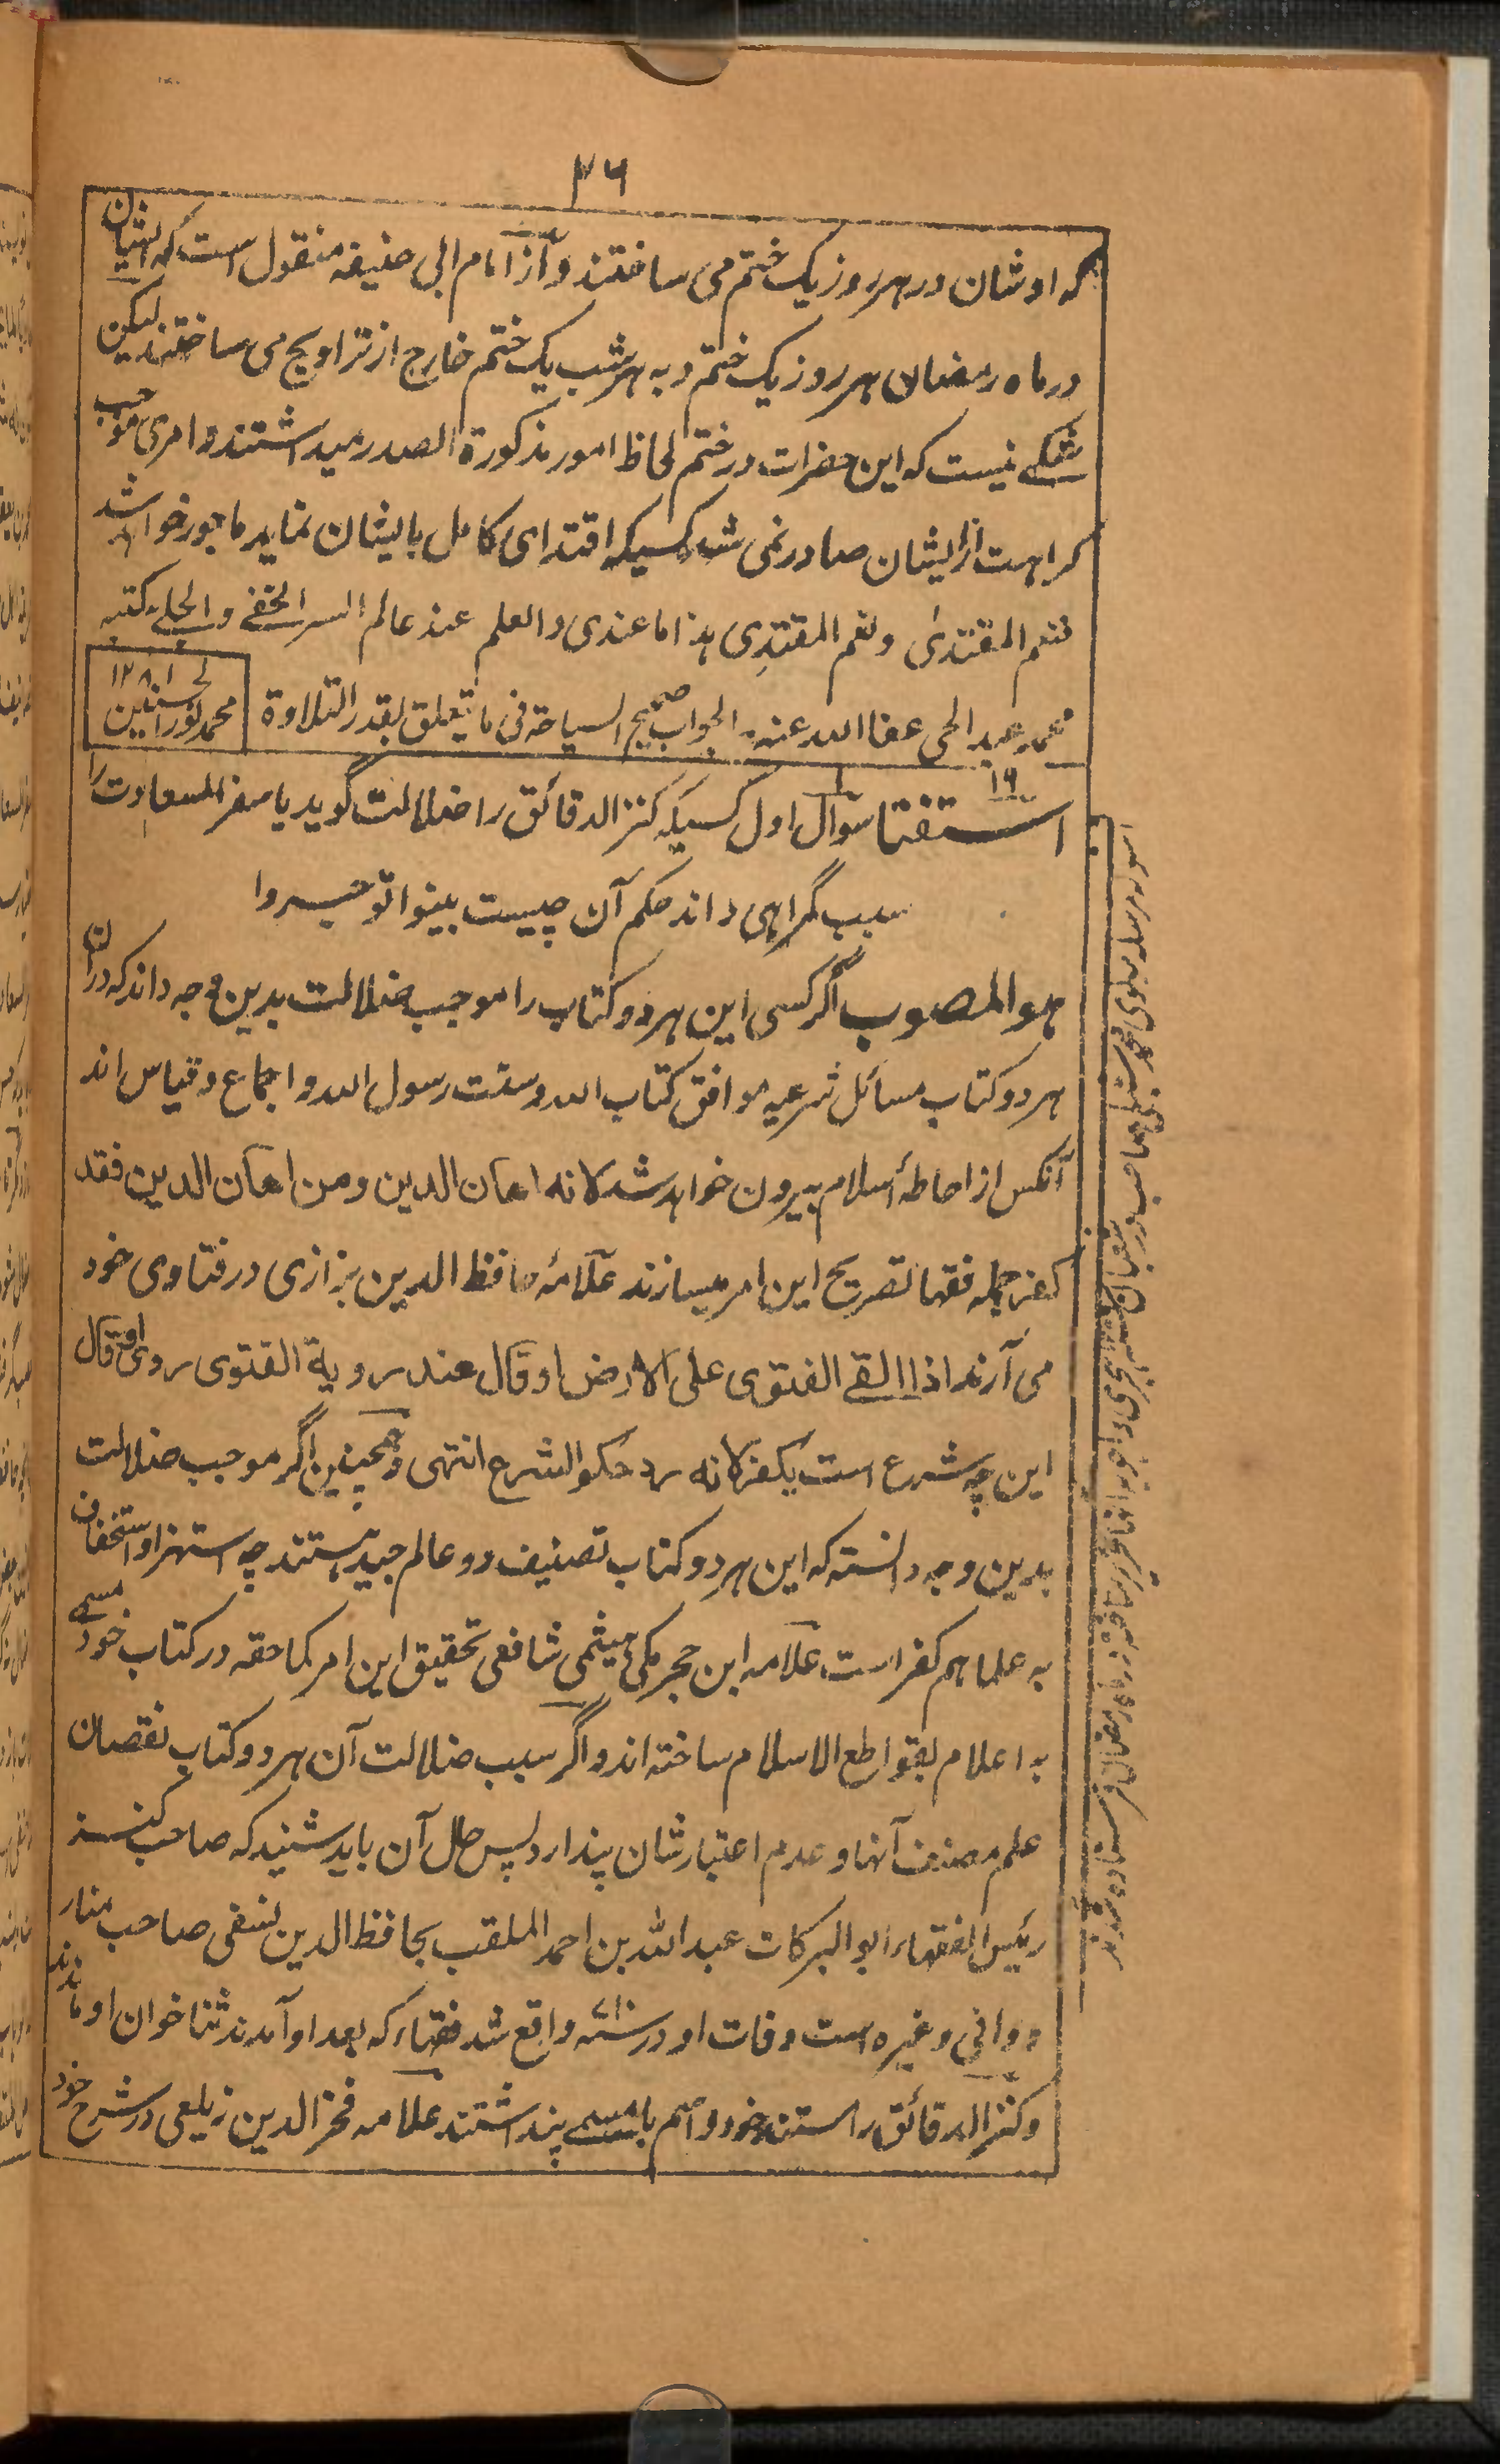 ۲۶
که اوشان در هر روز یک ختم می ساختند و از امام ابی حنیفه منقول است که ایشان
در ماه رمضان هر روز یک ختم و به هر شب یک ختم خارج از تراویح می ساختند لیکن
شکے نیست که این حضرات در ختم لحاظ امور مذکورة الصدر میداشتند و امری موجب
کراهت از ایشان صادر نمی شد کسیکه اقتدای کامل بایشان نماید ماجور خواهد شد
فنعم المقتدیٰ ونعم المقتدِی هذا ما عندی والعلم عند عالم السر الخفے والجلے کتبه
محمد عبد الحی عفا الله عنه الجواب صحیح السیاحة فی ما یتعلق بقدر التلاوة
محمد نور الحسنین ۱۲۸۱
۱۶
استفتا سوال اول کسیکه کنز الدقائق را ضلالت گوید یا سفر السعادت را
سبب گمراهی داند حکم آن چیست بینوا توجروا
هو المصوب اگر کسی این هر دو کتاب را موجب ضلالت بدین وجه داند که در ان
هر دو کتاب مسائل شرعیه موافق کتاب الله وسنت رسول الله و اجماع و قیاس اند
آنکس از احاطهٔ اسلام بیرون خواهد شد لانه اهان الدین ومن اهان الدین فقد
کفر جمله فقها تصریح این امر میسازند علامهٔ حافظ الدین بزازی در فتاوی خود
می آرند اذا القے الفتوی علی الارض او قال عند رویة الفتوی روی او قال
این چه شرع است یکفر لانه رد حکم الشرع انتهی و همچنین اگر موجب ضلالت
بدین وجه دانسته که این هر دو کتاب تصنیف دو عالم جید هستند چه استهزا و استخفاف
به علما هم کفر است علامه ابن حجر مکی هیثمی شافعی تحقیق این امر کما حقه در کتاب خود مسمے
به اعلام بقواطع الاسلام ساخته اند و اگر سبب ضلالت آن هر دو کتاب نقصان
علم مصنف آنها و عدم اعتبار شان پندارد پس حال آن باید شنید که صاحب کنز
رئیس الفقهاء ابو البرکات عبد الله بن احمد الملقب بحافظ الدین نسفی صاحب منار
و وافی وغیره است وفات او در سنه ۷۱۰ واقع شد فقهاء که بعد او آمدند ثنا خوان او ماندند
و کنز الدقائق را مستند خود و اسم بامسمے پنداشتند علامه فخر الدین زیلعی در شرح خود